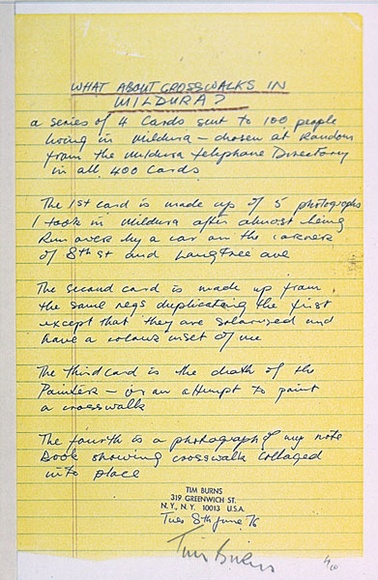 WHAT ABOUT CROSSWALKS IN
MILDURA?
a series of 4 Cards sent to 100 people
living in Mildura – chosen at Random
from the Mildura telephone Directory
in all 400 Cards
The 1st card is made up of 5 photographs
I took in Mildura after almost being
Run over by a car on the corner
of 8th st and Langtree ave
The second card is made up from
the same negs duplicating the first
except that they are solarised and
have a colour inset of me
The third card is the death of the
Painter – or an attempt to paint
a crosswalk
The fourth is a photograph of my note
Book showing crosswalk collaged
into place
TIM BURNS
319 GREENWICH ST.
N.Y., N.Y. 10013 U.S.A.
Tues 8th June 76
Tim Burns